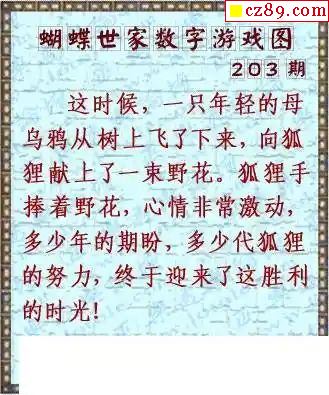 cz89.com
蝴蝶世家数字游戏图
203期
这时候，一只年轻的母
乌鸦从树上飞了下来，向狐
狸献上了一束野花。狐狸手
捧着野花，心情非常激动，
多少年的期盼，多少代狐狸
的努力，终于迎来了这胜利
的时光!